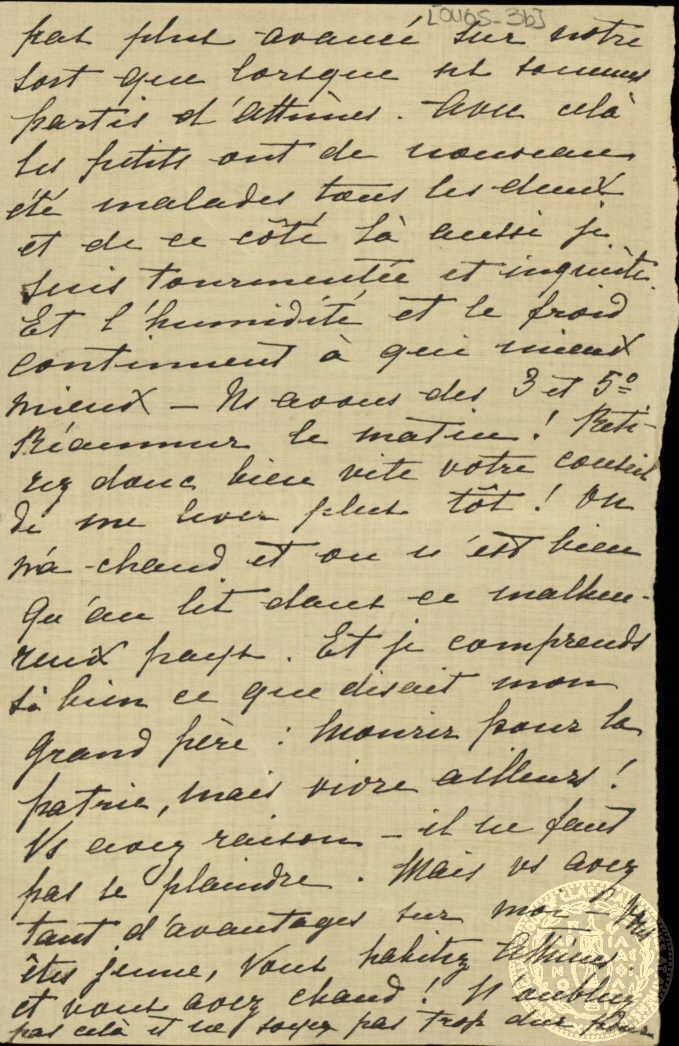 [OV65-3b]
pas plus avancé sur notre
sort que lorsque ns sommes
partis d'Athènes. Avec celà
les petits ont de nouveau
été malades tous les deux
et de ce côté là aussi je
suis tourmentée et inquiète.
Et l'humidité et le froid
continuent à qui mieux
mieux — Ns avons des 3 et 5°
Réaumur le matin! Reti-
rez donc bien vite votre conseil
de me lever plus tôt! On
n'a chaud et on n'est bien
qu'au lit dans ce malheu-
reux pays. Et je comprends
si bien ce que disait mon
grand père : Mourir pour la
patrie, mais vivre ailleurs!
Vs avez raison — il ne faut
pas se plaindre. Mais vs avez
tant d'avantages sur moi — Vous
êtes jeune, vous habitez Athènes
et vous avez chaud! N'oubliez
pas celà et ne soyez pas trop dur pour